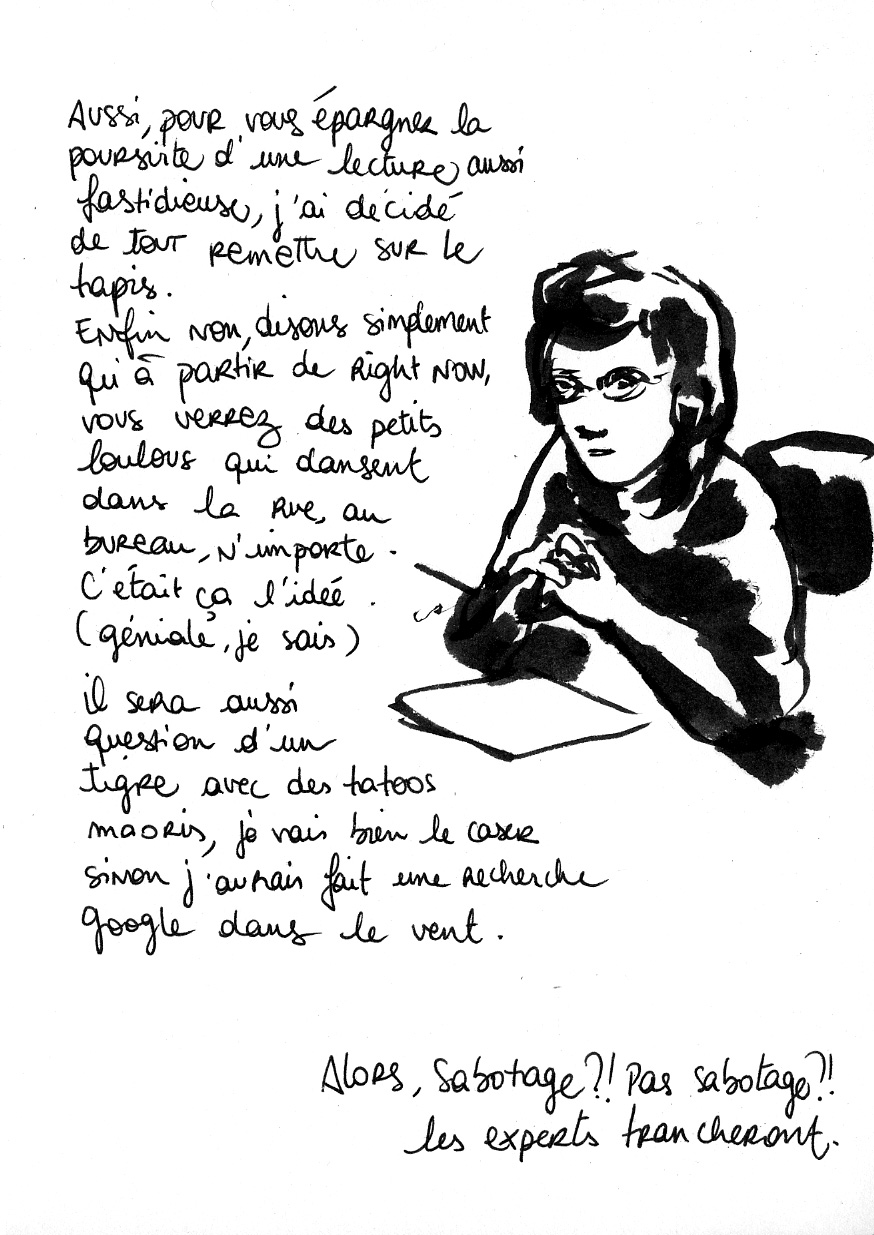 Aussi, pour vous épargner la
poursuite d'une lecture aussi
fastidieuse, j'ai décidé
de tout remettre sur le
tapis.
Enfin non, disons simplement
qu'à partir de Right now,
vous verrez des petits
loulous qui dansent
dans la rue, au
bureau, n'importe.
C'était ça l'idée.
(géniale, je sais)
il sera aussi
question d'un
tigre avec des tatoos
maoris, je vais bien le caser
sinon j'aurais fait une recherche
google dans le vent.
Alors, Sabotage?! Pas sabotage?!
les experts trancheront.